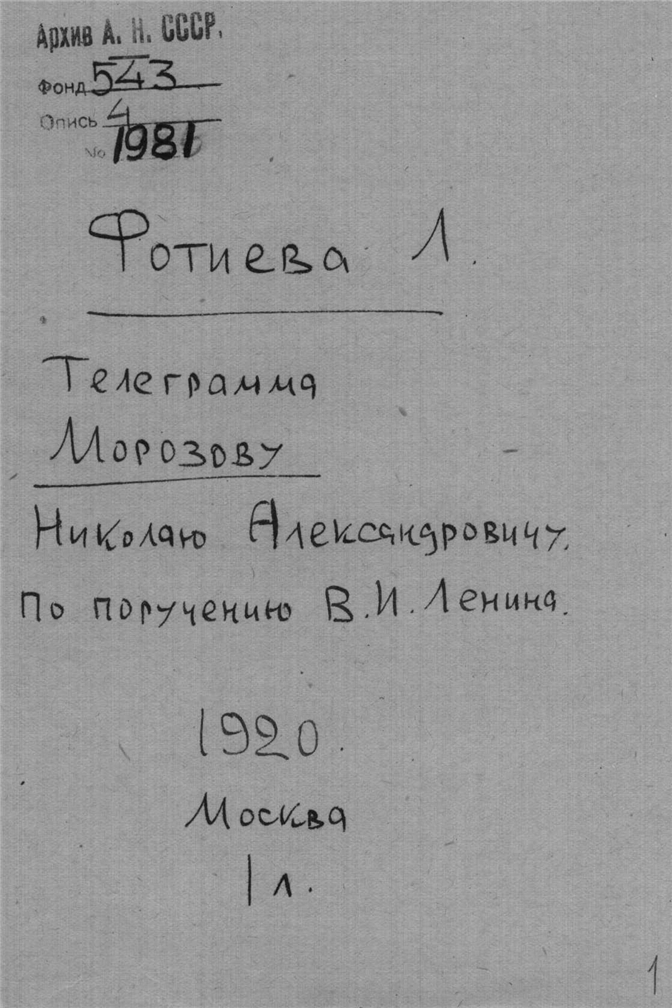 Архив А. Н. СССР.
Фонд 543
Опись 4
№ 1981
Фотиева Л.
Телеграмма
Морозову
Николаю Александровичу.
По поручению В.И.Ленина.
1920.
Москва
1 л.
1